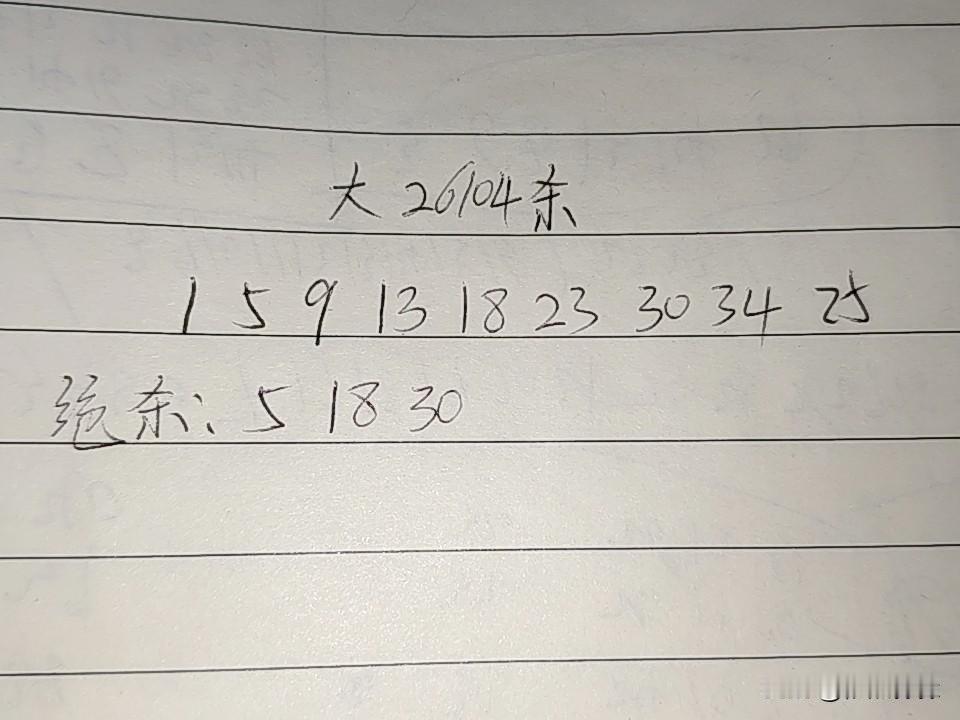 大 26104杀
1 5 9 13 18 23 30 34 25
绝杀: 5 18 30